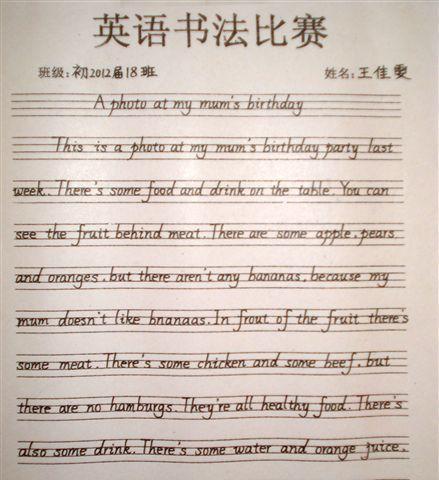 英语书法比赛
班级：初2012届18班 姓名：王佳雯
A photo at my mum's birthday
This is a photo at my mum's birthday party last
week. There's some food and drink on the table. You can
see the fruit behind meat. There are some apple, pears
and oranges, but there aren't any bananas, because my
mum doesn't like bnanaas. In frout of the fruit there's
some meat. There's some chicken and some beef, but
there are no hamburgs. They're all healthy food. There's
also some drink. There's some water and orange juice.